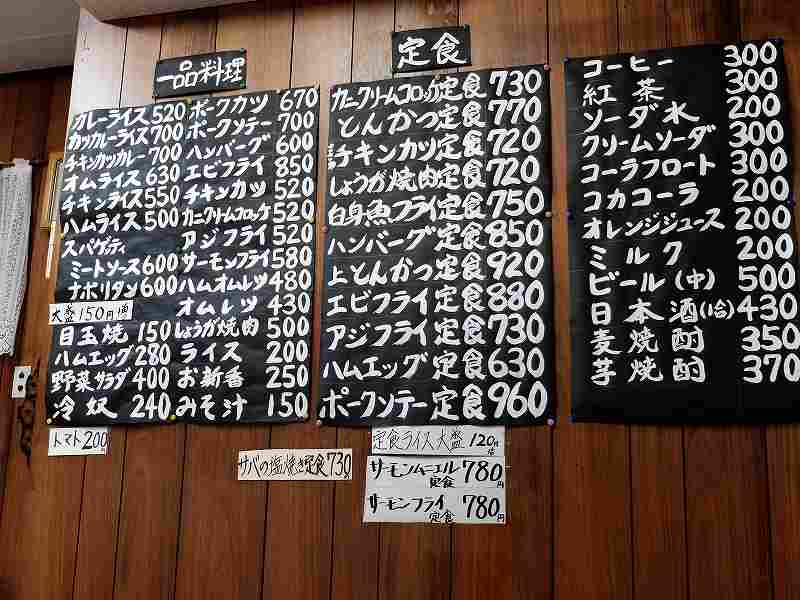 一品料理
カレーライス 520
カツカレーライス 700
チキンカツカレー 700
オムライス 630
チキンライス 550
ハムライス 500
スパゲッティ
ミートソース 600
ナポリタン 600
大盛150円増
目玉焼 150
ハムエッグ 280
野菜サラダ 400
冷奴 240
トマト 200円
ポークカツ 670
ポークソテー 700
ハンバーグ 600
エビフライ 850
チキンカツ 520
カニクリームコロッケ 520
アジフライ 520
サーモンフライ 580
ハムオムレツ 480
オムレツ 430
しょうが焼肉 500
ライス 200
お新香 250
みそ汁 150
定食
カニクリームコロッケ定食 730
とんかつ定食 770
チキンカツ定食 720
しょうが焼肉定食 720
白身魚フライ定食 750
ハンバーグ定食 850
上とんかつ定食 920
エビフライ定食 880
アジフライ定食 730
ハムエッグ定食 630
ポークソテー定食 960
サバの塩焼き定食 730円
定食ライス大盛 120円増
サーモンムニエル定食 780円
サーモンフライ定食 780円
コーヒー 300
紅茶 300
ソーダ水 200
クリームソーダ 300
コーラフロート 300
コカコーラ 200
オレンジジュース 200
ミルク 200
ビール(中) 500
日本酒(1合) 430
麦焼酎 350
芋焼酎 370